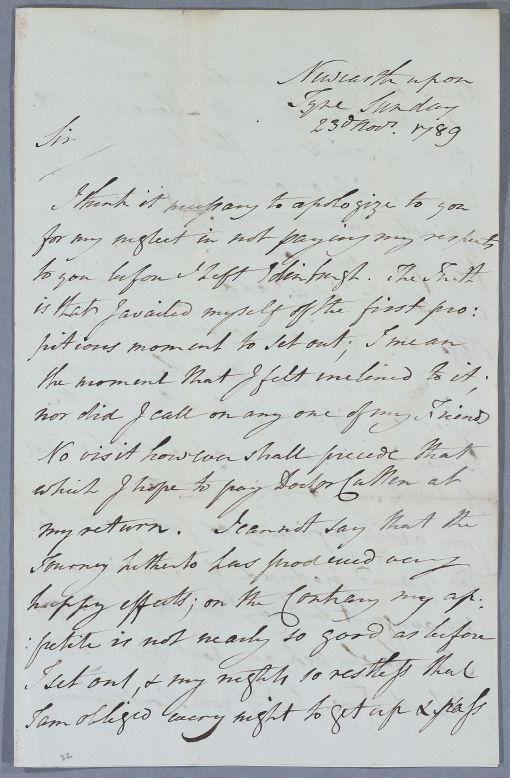 Newcastle upon
Tyne Sunday
23d Novr. 1789
Sir
I think it necessary to apologize to you
for my neglect in not paying my respects
to you before I left Edinburgh. The Truth
is that I availed myself of the first pro:
pitious moment to set out; I mean
the moment that I felt inclined to it;
nor did I call on any one of my Friends
No visit however shall precede that
which I hope to pay Doctor Cullen at
my return. I cannot say that the
Journey hitherto has produced very
happy effects; on the Contrary my ap:
:petite is not nearly so good as before
I set out, & my nights so restless that
I am obliged every night to get up & pass
32